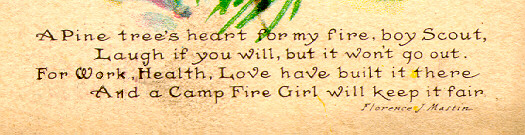 A Pine tree's heart for my fire, boy Scout,
Laugh if you will, but it won't go out.
For Work, Health, Love have built it there
And a Camp Fire Girl will keep it fair
Florence J. Mastin